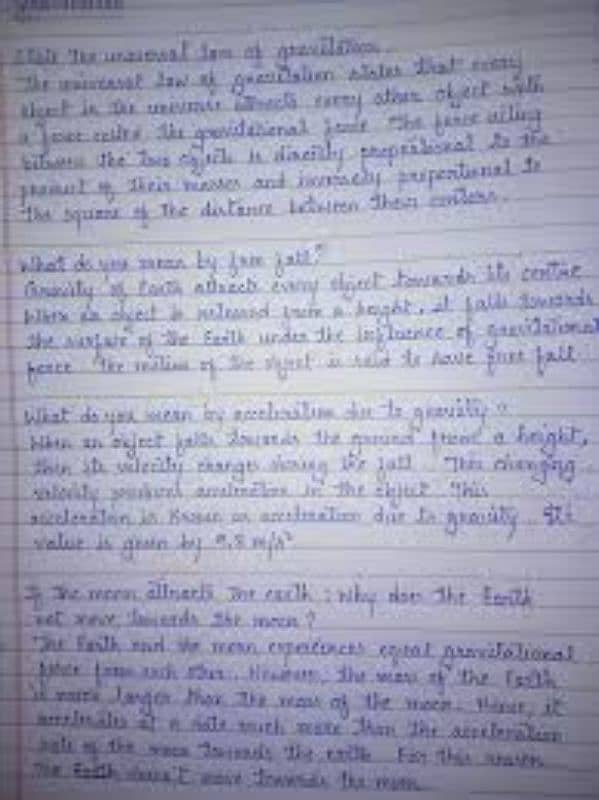 Gravitation
State the universal law of gravitation.
The universal law of gravitation states that every
object in the universe attracts every other object with
a force called the gravitational force. The force acting
between the two objects is directly proportional to the
product of their masses and inversely proportional to
the square of the distance between their centers.
What do you mean by free fall?
Gravity of Earth attracts every object towards its centre
When an object is released from a height, it falls towards
the surface of the Earth under the influence of gravitational
force. The motion of the object is said to have free fall.
What do you mean by acceleration due to gravity?
When an object falls towards the ground from a height,
then its velocity changes during the fall. This changing
velocity produces acceleration in the object. This
acceleration is known as acceleration due to gravity. Its
value is given by 9.8 m/s²
If the moon attracts the earth, why does the Earth
not move towards the moon?
The Earth and the moon experiences equal gravitational
force from each other. However, the mass of the Earth
is much larger than the mass of the moon. Hence, it
accelerates at a rate much more than the acceleration
rate of the moon towards the earth. For this reason
The Earth doesn't move towards the moon.